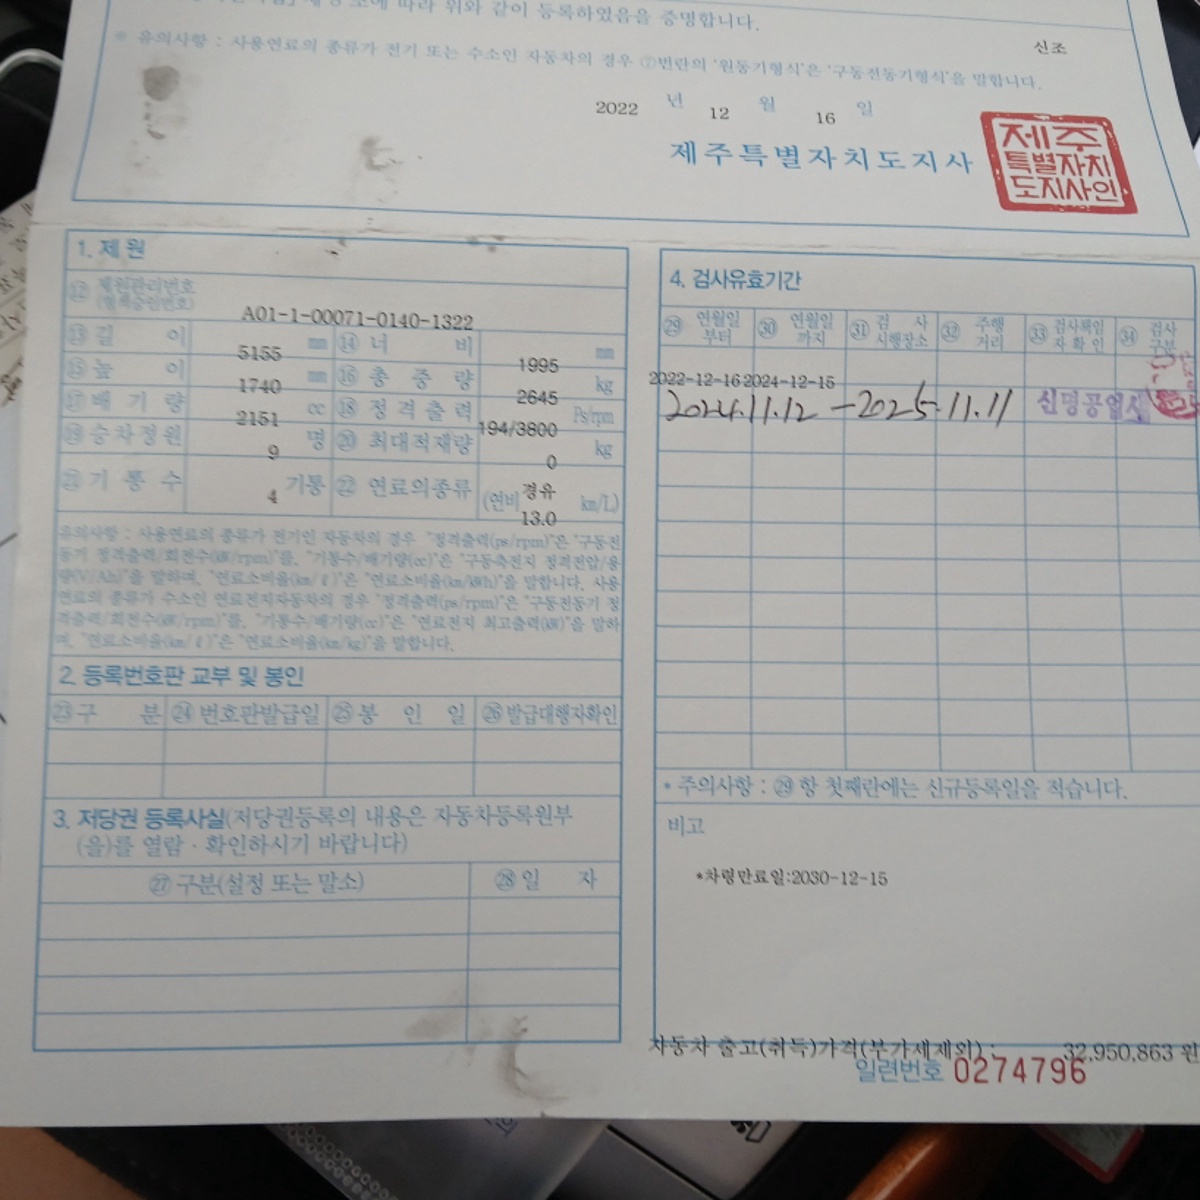 제 조에 따라 위와 같이 등록하였음을 증명합니다.
신조
※ 유의사항 : 사용연료의 종류가 전기 또는 수소인 자동차의 경우 ⑦번란의 '원동기형식'은 '구동전동기형식'을 말합니다.
2022 년 12 월 16 일
제주특별자치도지사
제주
특별자치
도지사인
1. 제 원
⑫ 제원관리번호
(형식승인번호)
A01-1-00071-0140-1322
⑬ 길 이 5155 mm ⑭ 너 비 1995 mm
⑮ 높 이 1740 mm ⑯ 총 중 량 2645 kg
⑰ 배 기 량 2151 cc ⑱ 정 격 출 력 194/3800 Ps/rpm
⑲ 승차정원 9 명 ⑳ 최대적재량 0 kg
㉑ 기 통 수 4 기통 ㉒ 연료의종류 경유
(연비 13.0 km/L)
유의사항 : 사용연료의 종류가 전기인 자동차의 경우 "정격출력(ps/rpm)"은 "구동전
동기 정격출력/회전수(kW/rpm)"를, "기통수/배기량(cc)"은 "구동축전지 정격전압/용
량(V/Ah)"을 말하며, "연료소비율(km/ℓ)"은 "연료소비율(km/kWh)"을 말합니다. 사용
연료의 종류가 수소인 연료전지자동차의 경우 "정격출력(ps/rpm)"은 "구동전동기 정
격출력/회전수(kW/rpm)"를, "기통수/배기량(cc)"은 "연료전지 최고출력(kW)"을 말하
며, "연료소비율(km/ℓ)"은 "연료소비율(km/kg)"을 말합니다.
2. 등록번호판 교부 및 봉인
㉓ 구 분 ㉔ 번호판발급일 ㉕ 봉 인 일 ㉖ 발급대행자확인
3. 저당권 등록사실(저당권등록의 내용은 자동차등록원부
(을)를 열람 · 확인하시기 바랍니다)
㉗ 구분(설정 또는 말소) ㉘ 일 자
4. 검사유효기간
㉙ 연월일 부터 ㉚ 연월일 까지 ㉛ 검 사 시행장소 ㉜ 주행 거리 ㉝ 검사책임 자 확 인 ㉞ 검사 구분
2022-12-16 2024-12-15
2024.11.12 - 2025.11.11 신명공업사
* 주의사항 : ㉙ 항 첫째란에는 신규등록일을 적습니다.
비고
*차령만료일:2030-12-15
자동차 출고(취득)가격(부가세제외) : 32,950,863 원
일련번호 0274796